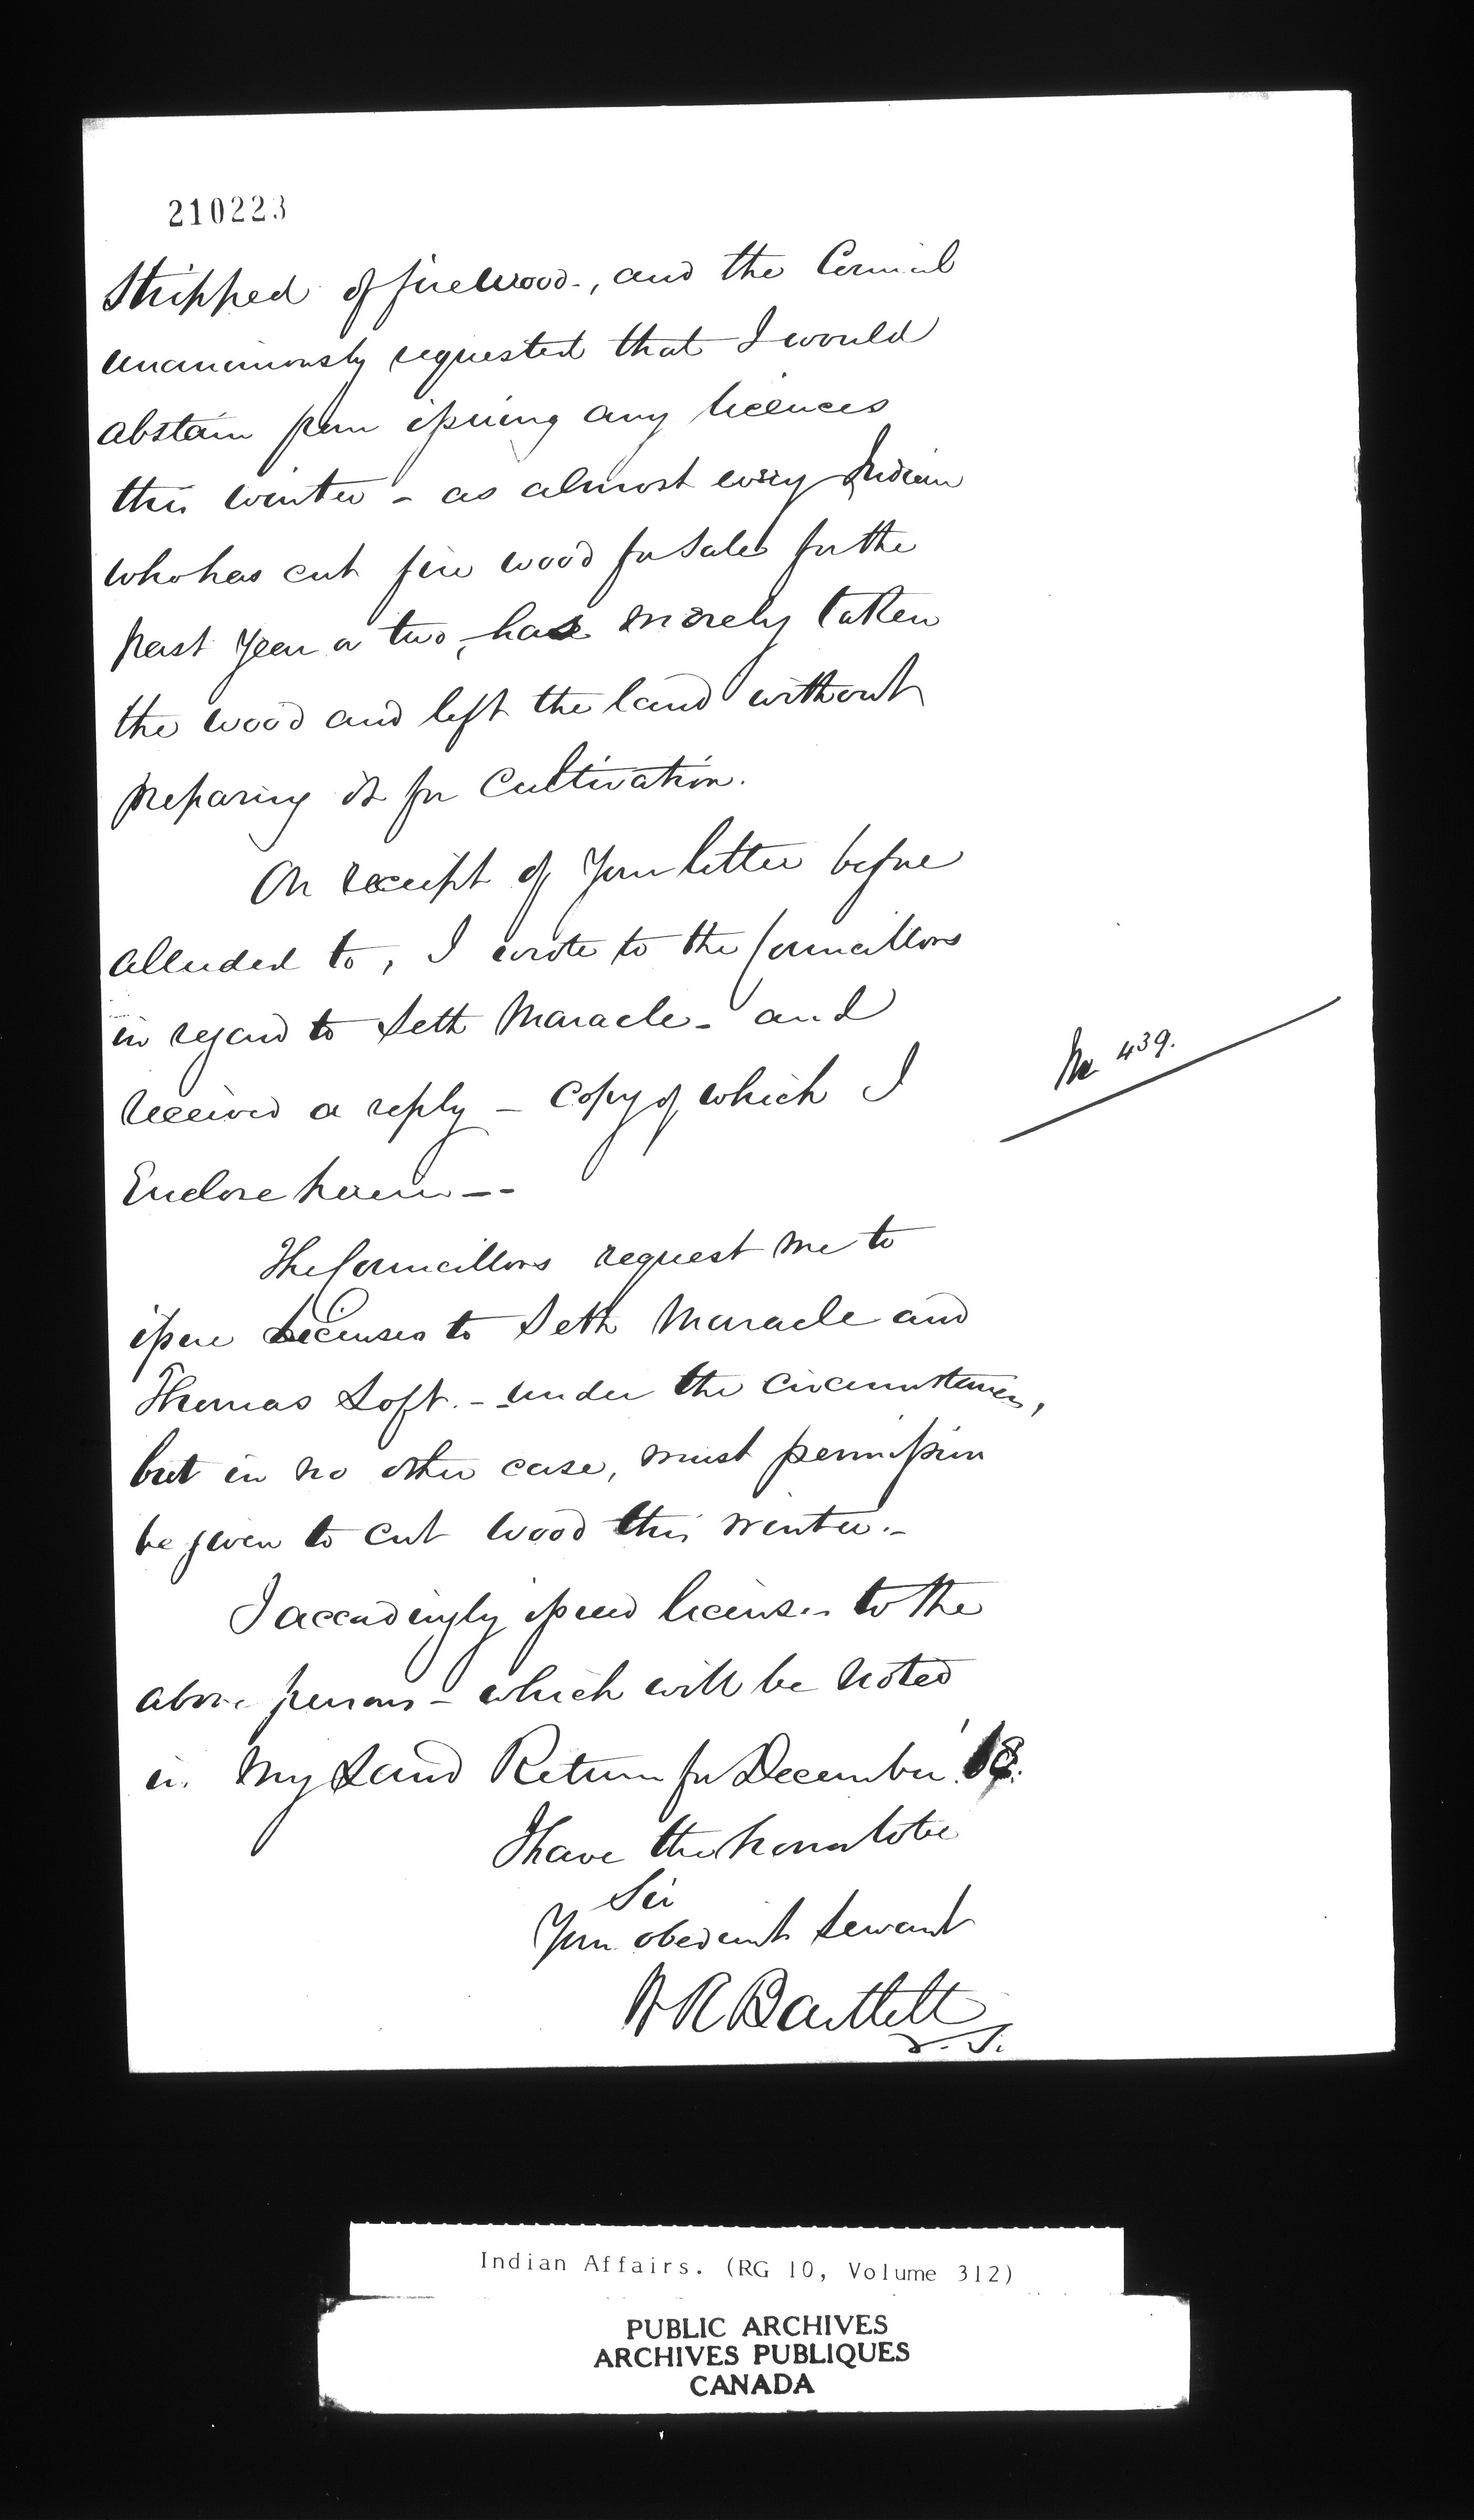 210223
Stripped of firewood, and the Council
unanimously requested that I would
abstain from issuing any licences
this winter - as almost every Indian
who has cut fire wood for sale for the
past year or two, has merely taken
the wood and left the land without
preparing it for Cultivation.
On receipt of your letter before
alluded to, I wrote to the Councillors
in regard to Seth Maracle - and
received a reply - Copy of which I
No 439.
Enclose herein --
The Councillors request me to
issue Licenses to Seth Maracle and
Thomas Loft. - under the circumstances,
but in no other case, must permission
be given to cut wood this winter. -
I accordingly issued licenses to the
above persons - which will be noted
in my Land Return for December '68.
I have the honor to be
Sir
Your obedient servant
W R Bartlett
Indian Affairs. (RG 10, Volume 312)
PUBLIC ARCHIVES
ARCHIVES PUBLIQUES
CANADA